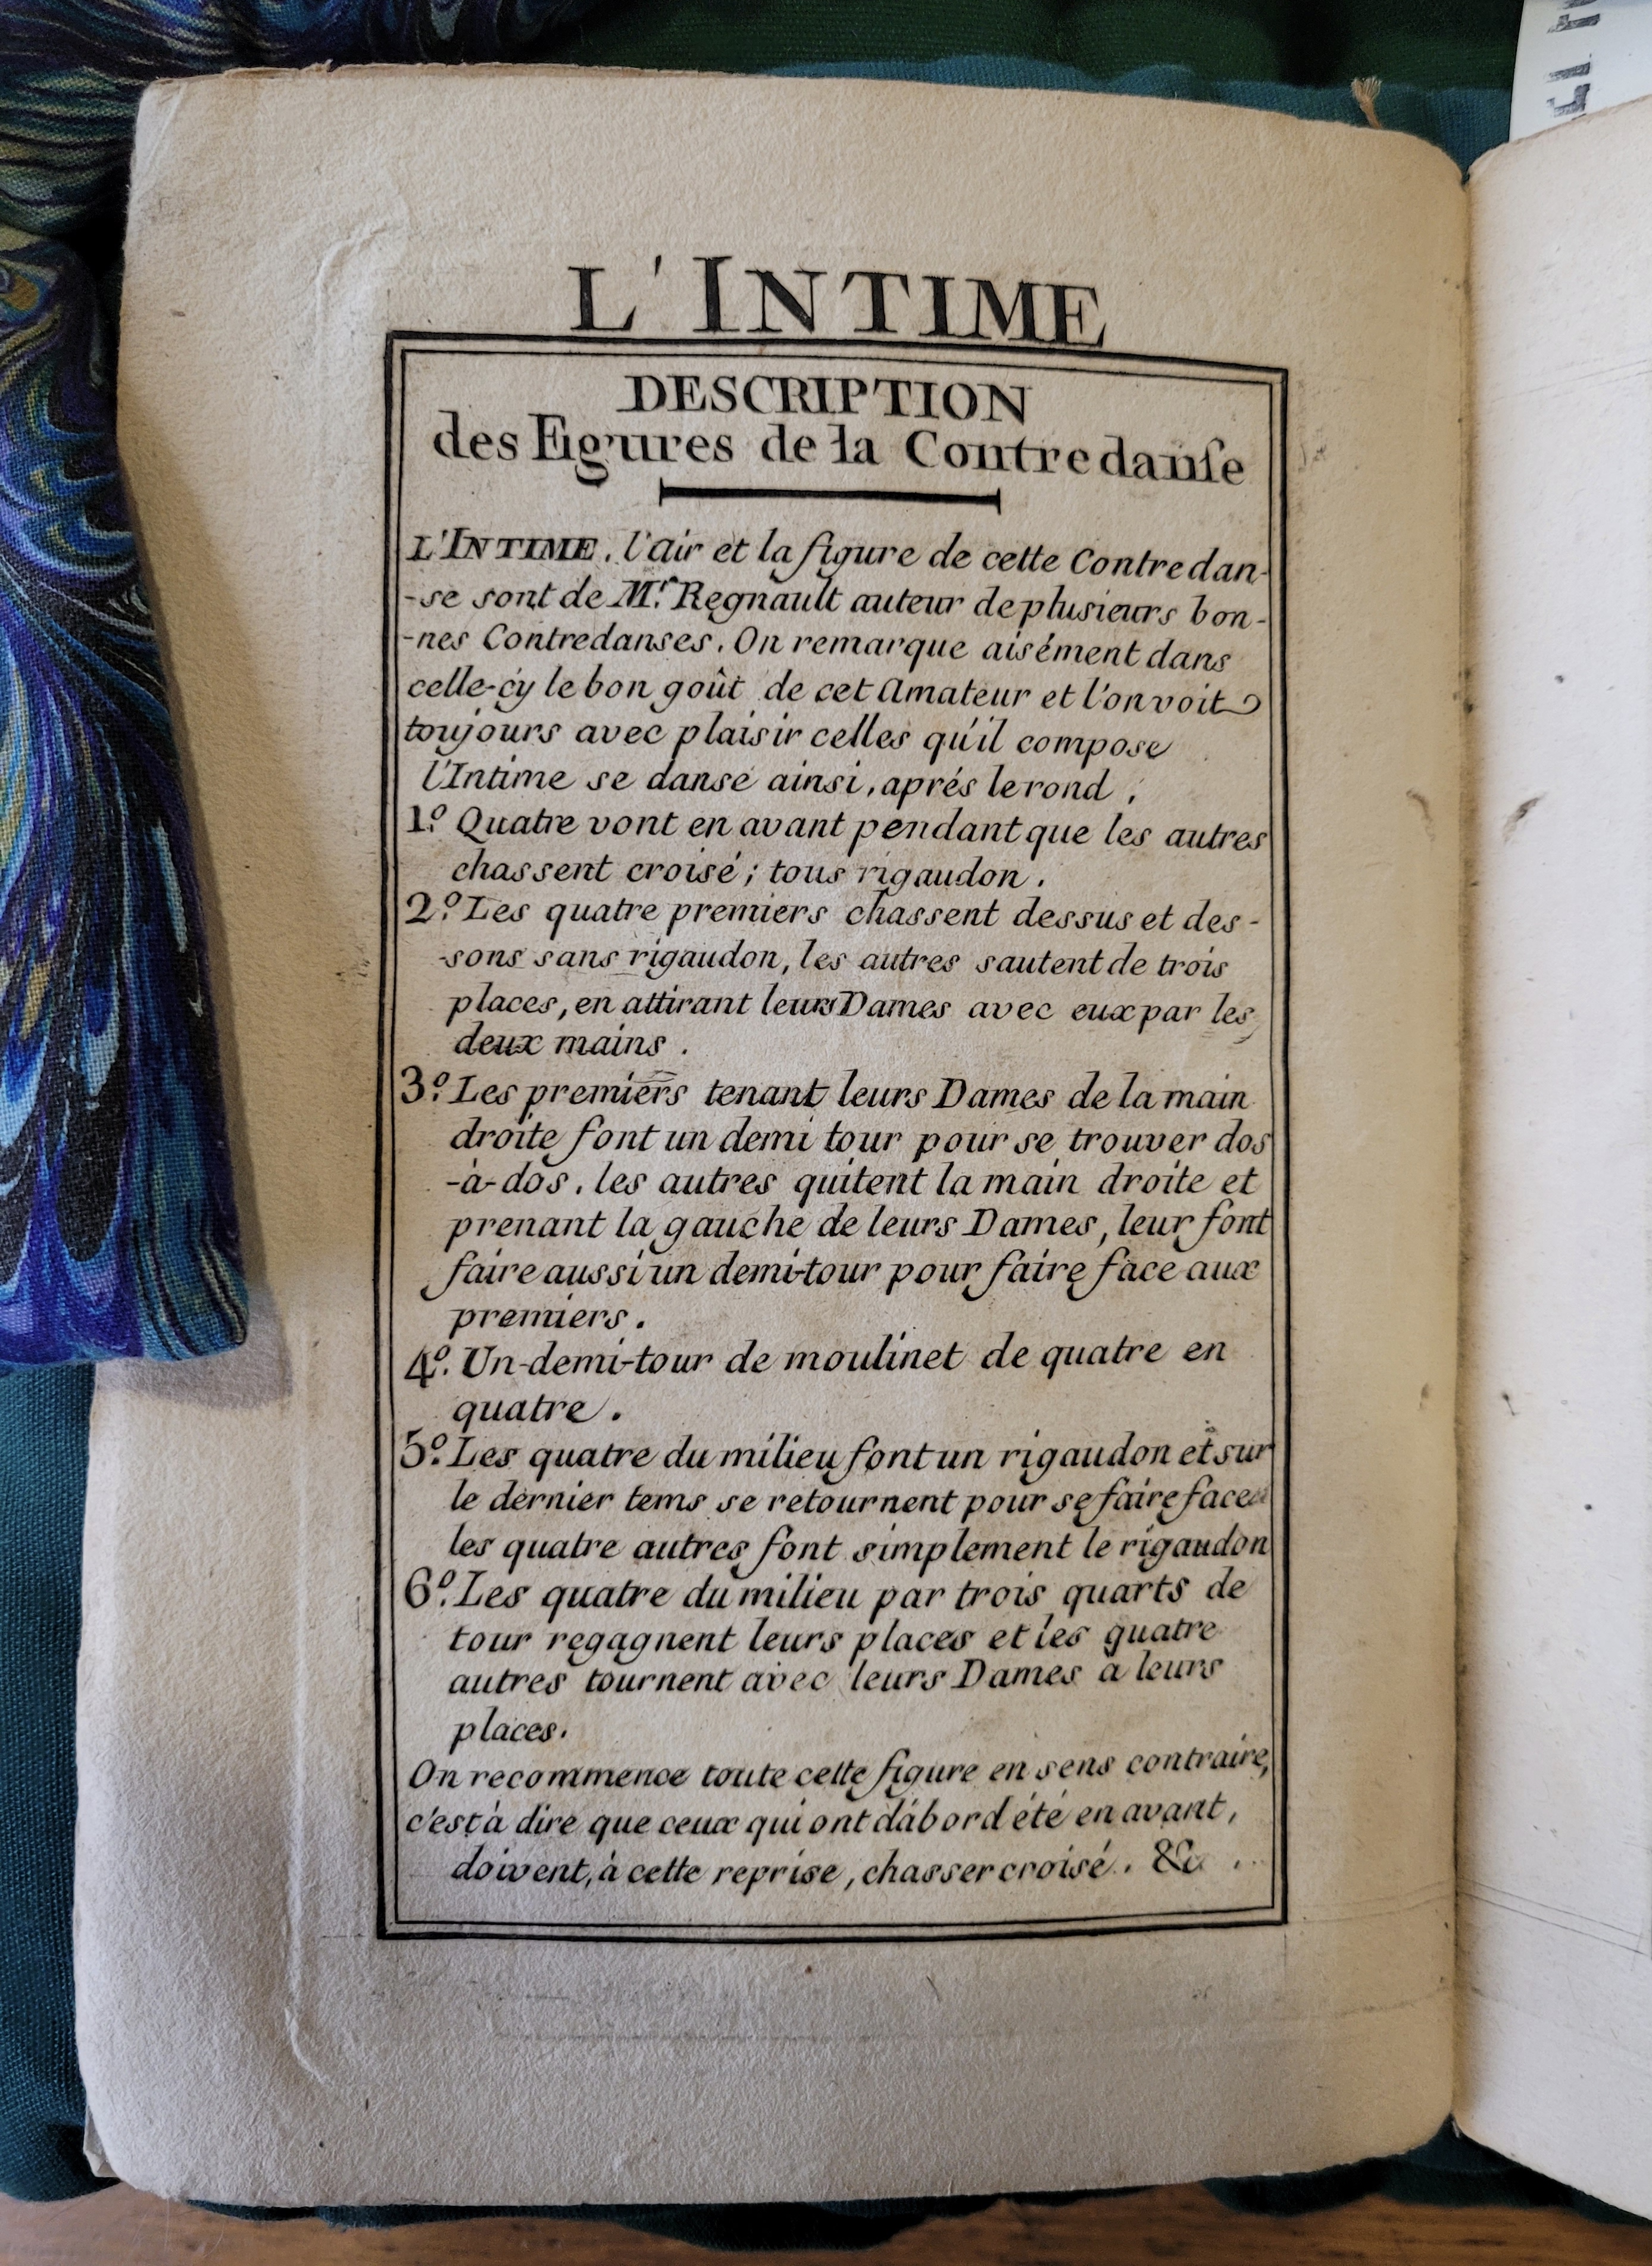 L'INTIME
DESCRIPTION
des Figures de la Contredanſe
L'INTIME. l'air et la figure de cette Contredan-
-se sont de Mr. Regnault auteur de plusieurs bon-
-nes Contredanses. On remarque aisément dans
celle-cy le bon goût de cet Amateur et l'on voit
toujours avec plaisir celles qu'il compose
l'Intime se danse ainsi, aprés le rond,
1.º Quatre vont en avant pendant que les autres
chassent croisé; tous rigaudon.
2.º Les quatre premiers chassent dessus et des-
-sons sans rigaudon, les autres sautent de trois
places, en attirant leurs Dames avec eux par les
deux mains.
3.º Les premiers tenant leurs Dames de la main
droite font un demi tour pour se trouver dos
-à-dos. les autres quitent la main droite et
prenant la gauche de leurs Dames, leur font
faire aussi un demi-tour pour faire face aux
premiers.
4.º Un-demi-tour de moulinet de quatre en
quatre.
5.º Les quatre du milieu font un rigaudon et sur
le dernier tems se retournent pour se faire face
les quatre autres font simplement le rigaudon
6.º Les quatre du milieu par trois quarts de
tour regagnent leurs places et les quatre
autres tournent avec leurs Dames à leurs
places.
On recommence toute cette figure en sens contraire,
c'est à dire que ceux qui ont d'abord été en avant,
doivent, à cette reprise, chasser croisé. &c